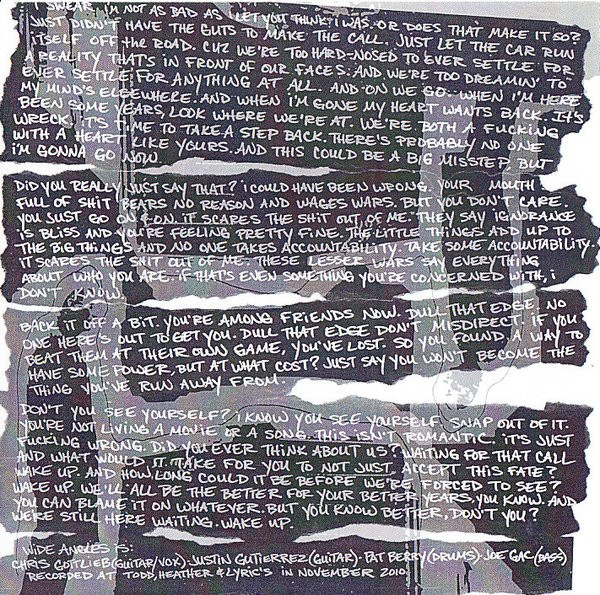 I SWEAR I'M NOT AS BAD AS I LET YOU THINK I WAS. OR DOES THAT MAKE IT SO?
JUST DIDN'T HAVE THE GUTS TO MAKE THE CALL. JUST LET THE CAR RUN
ITSELF OFF the ROAD. CUZ WE'RE TOO HARD-NOSED TO EVER SETTLE FOR
A REALITY THAT'S IN FRONT OF OUR FACES. AND WE'RE TOO DREAMIN' TO
EVER SETTLE FOR ANYTHING AT ALL. AND ON WE GO. WHEN I'M HERE
MY MIND'S ELSEWHERE. AND WHEN I'M GONE MY HEART WANTS BACK. IT'S
BEEN SOME YEARS, LOOK WHERE WE'RE AT. WE'RE BOTH A FUCKING
WRECK. IT'S TIME TO TAKE A STEP BACK. THERE'S PROBABLY NO ONE
WITH A HEART LIKE YOURS. AND THIS COULD BE A BIG MISSTEP BUT
I'M GONNA GO NOW.
DID YOU REALLY JUST SAY THAT? I COULD HAVE BEEN WRONG. YOUR MOUTH
FULL OF SHIT BEARS NO REASON AND WAGES WARS. BUT YOU DON'T CARE.
YOU JUST GO ON & ON. IT SCARES THE SHIT OUT OF ME. THEY SAY IGNORANCE
IS BLISS AND YOU'RE FEELING PRETTY FINE. THE LITTLE THINGS ADD UP TO
THE BIG THINGS AND NO ONE TAKES ACCOUNTABILITY. TAKE SOME ACCOUNTABILITY.
IT SCARES THE SHIT OUT OF ME. THESE LESSER WARS SAY EVERYTHING
ABOUT WHO YOU ARE. IF THAT'S EVEN SOMETHING YOU'RE CONCERNED WITH, I
DON'T KNOW.
BACK IT OFF A BIT. YOU'RE AMONG FRIENDS NOW. DULL THAT EDGE. NO
ONE HERE'S OUT TO GET YOU. DULL THAT EDGE DON'T MISDIRECT. IF YOU
BEAT THEM AT THEIR OWN GAME, YOU'VE LOST. SO YOU FOUND A WAY TO
HAVE SOME POWER, BUT AT WHAT COST? JUST SAY YOU WON'T BECOME THE
THING YOU'VE RUN AWAY FROM.
DON'T YOU SEE YOURSELF? I KNOW YOU SEE YOURSELF. SNAP OUT OF IT.
YOU'RE NOT LIVING A MOVIE OR A SONG. THIS ISN'T ROMANTIC. IT'S JUST
FUCKING WRONG. DID YOU EVER THINK ABOUT US? WAITING FOR THAT CALL
AND WHAT WOULD IT TAKE FOR YOU TO NOT JUST ACCEPT THIS FATE?
WAKE UP. AND HOW LONG COULD IT BE BEFORE WE'RE FORCED TO SEE?
WAKE UP. WE'LL ALL BE THE BETTER FOR YOUR BETTER YEARS, YOU KNOW. AND
YOU CAN BLAME IT ON WHATEVER. BUT YOU KNOW BETTER, DON'T YOU?
WE'RE STILL HERE WAITING. WAKE UP.
WIDE ANGLES IS:
CHRIS GOTTLIEB (GUITAR/VOX) • JUSTIN GUTIERREZ (GUITAR) • PAT BERRY (DRUMS) • JOE GAC (BASS)
RECORDED AT TODD, HEATHER & LYRIC'S IN NOVEMBER 2010